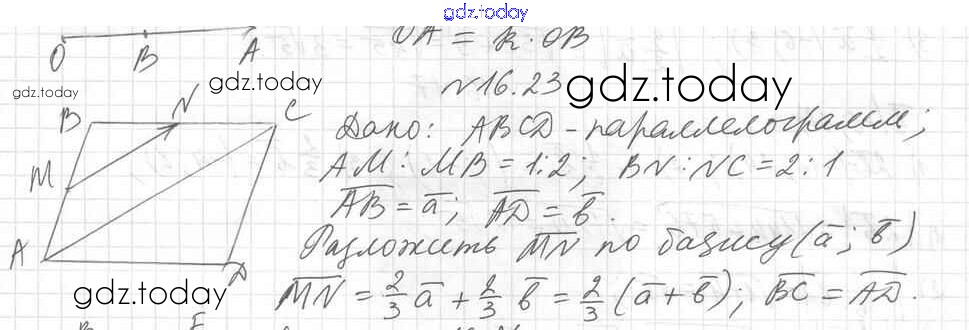 gdz.today
O B A
OA = k · OB
gdz.today
gdz.today
№16.23
gdz.today
B N C
Дано: ABCD - параллелограмм;
M
AM : MB = 1:2; BN : NC = 2:1
AB = a; AD = b.
A
Разложить MN по базису (a; b)
D
gdz.today
MN = 2/3 a + 2/3 b = 2/3 (a + b); BC = AD.